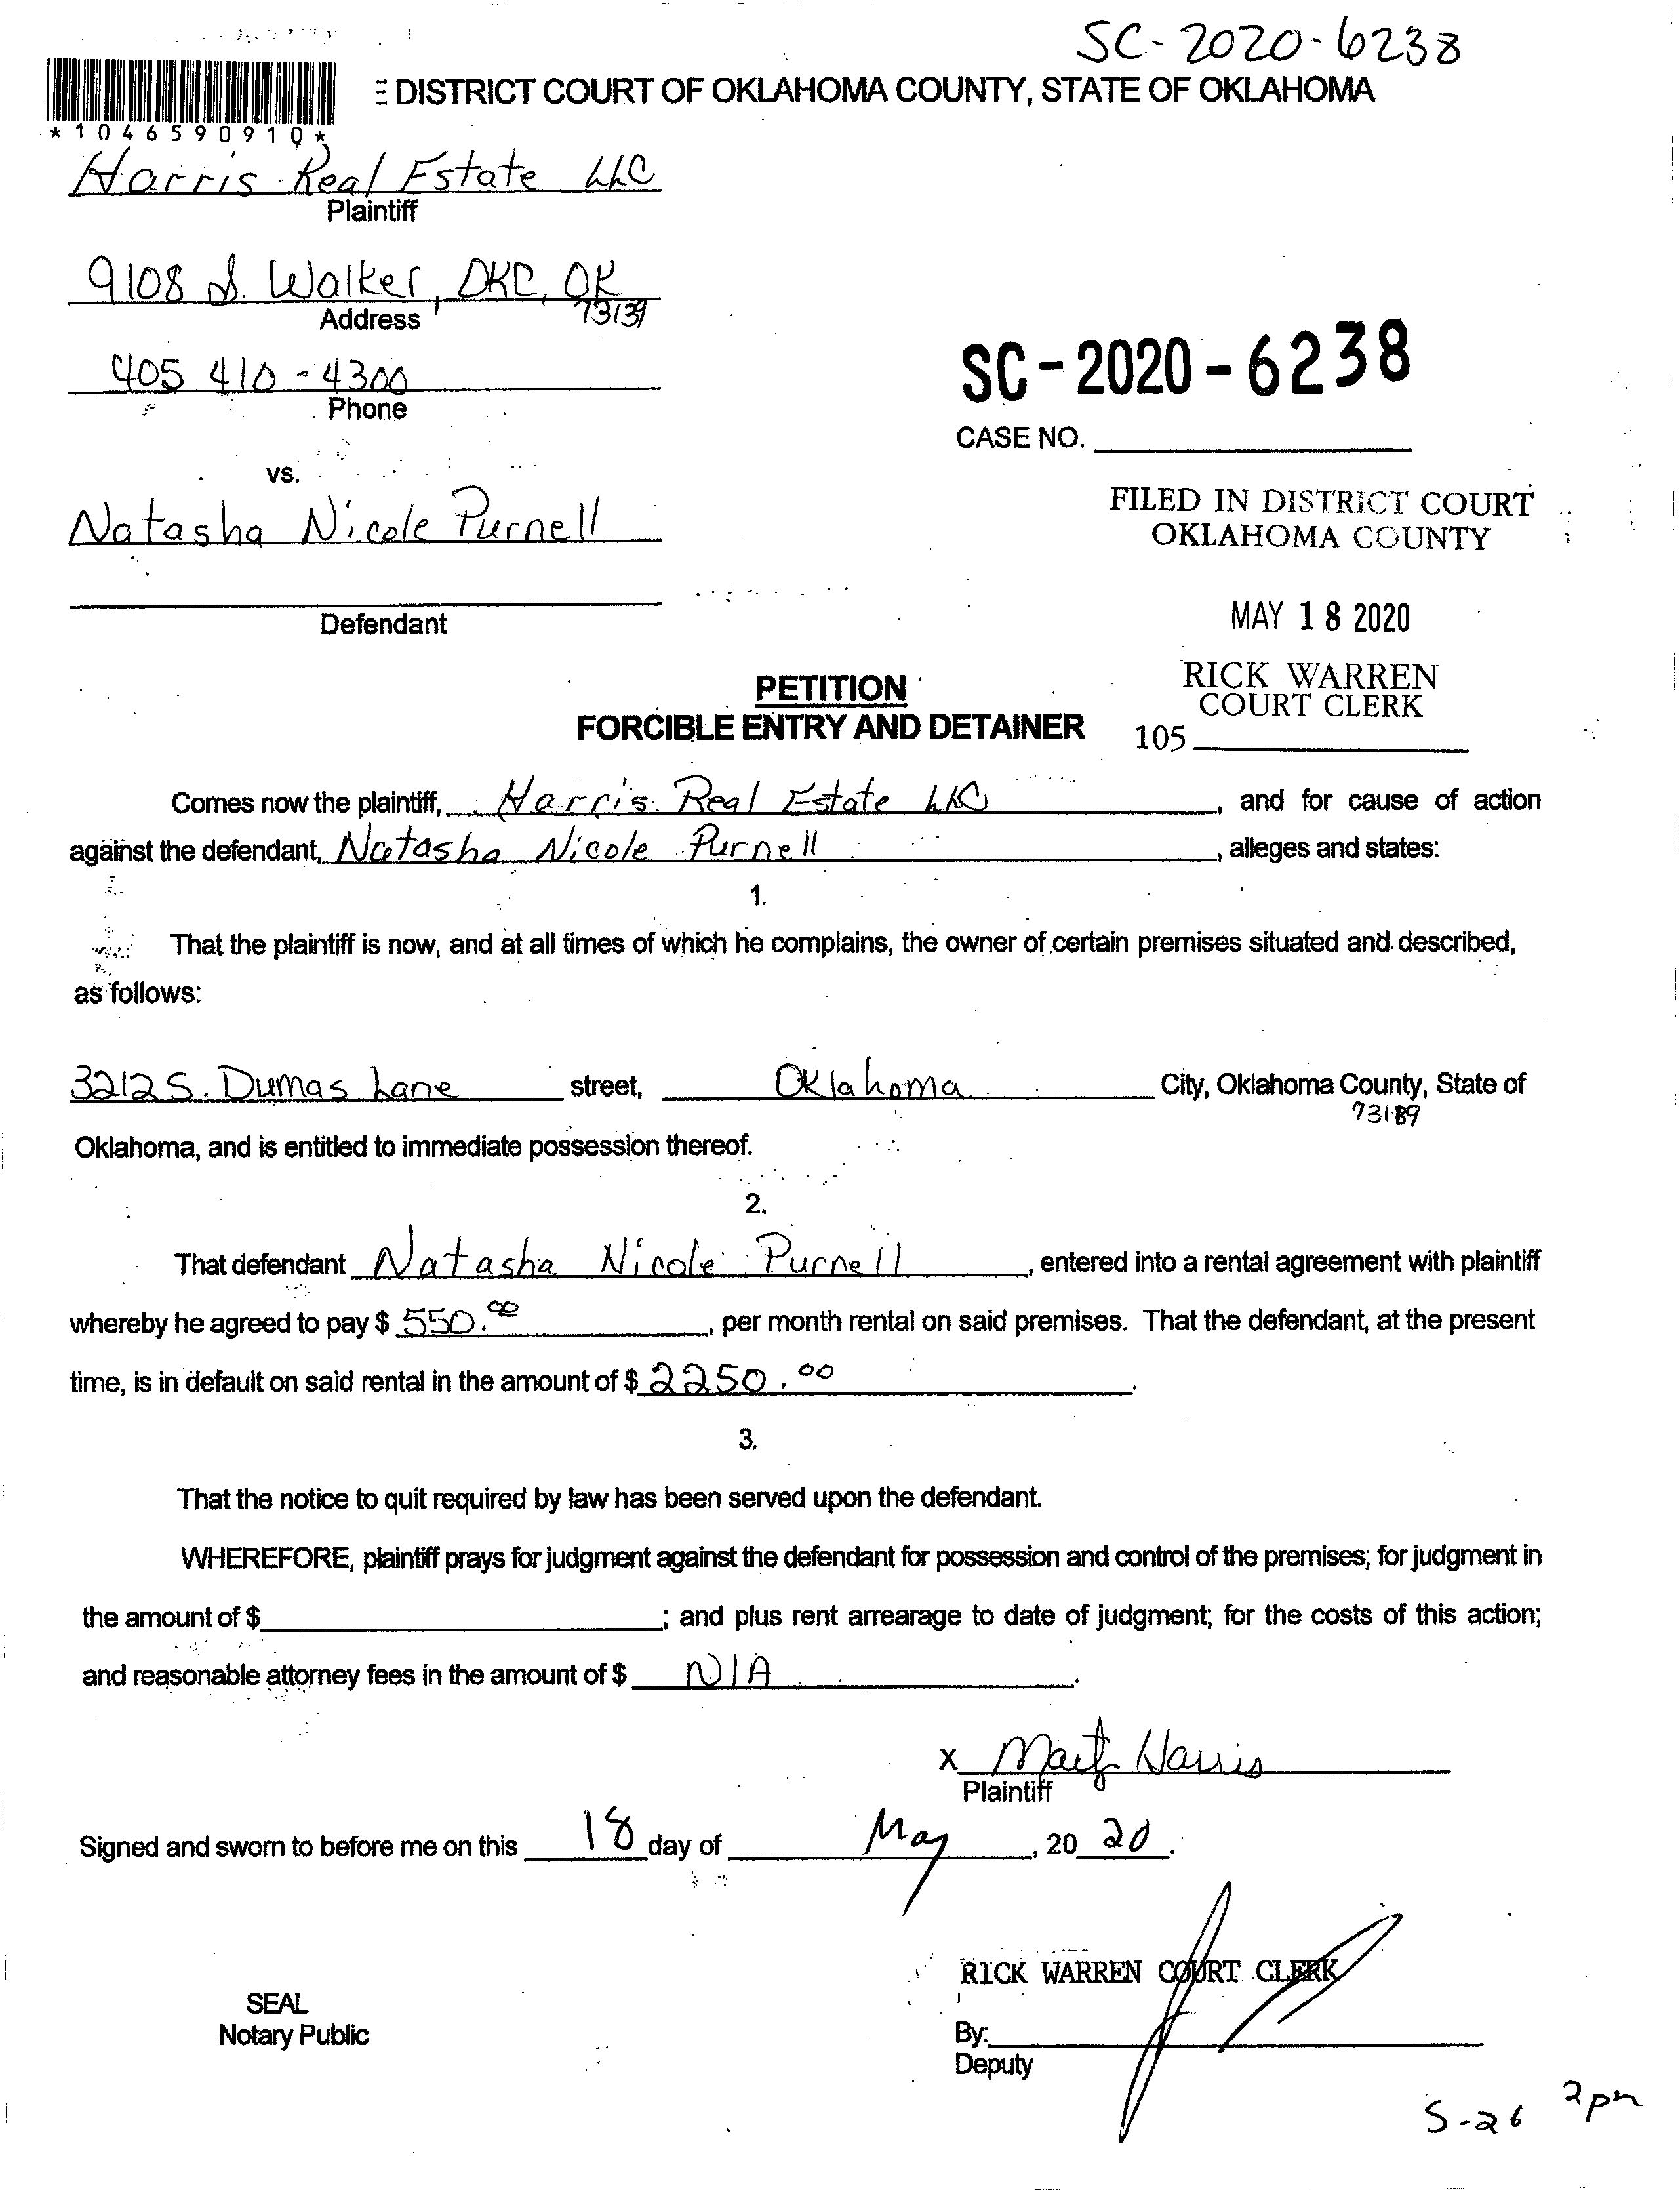 SC-2020-6238
DISTRICT COURT OF OKLAHOMA COUNTY, STATE OF OKLAHOMA
*1046590910*
Harris Real Estate LLC
Plaintiff
9108 S. Walker, OKC, OK
73139
Address
405 410-4300
Phone
SC-2020-6238
CASE NO.
vs.
Natasha Nicole Purnell
FILED IN DISTRICT COURT
OKLAHOMA COUNTY
Defendant
MAY 18 2020
RICK WARREN
COURT CLERK
105
PETITION
FORCIBLE ENTRY AND DETAINER
Comes now the plaintiff, Harris Real Estate LLC, and for cause of action
against the defendant, Natasha Nicole Purnell, alleges and states:
1.
That the plaintiff is now, and at all times of which he complains, the owner of certain premises situated and described,
as follows:
3212 S. Dumas Lane street, Oklahoma City, Oklahoma County, State of
Oklahoma, and is entitled to immediate possession thereof.
2.
That defendant Natasha Nicole Purnell, entered into a rental agreement with plaintiff
whereby he agreed to pay $ 550.00, per month rental on said premises. That the defendant, at the present
time, is in default on said rental in the amount of $ 2250.00.
3.
That the notice to quit required by law has been served upon the defendant.
WHEREFORE, plaintiff prays for judgment against the defendant for possession and control of the premises; for judgment in
the amount of $ ; and plus rent arrearage to date of judgment; for the costs of this action;
and reasonable attorney fees in the amount of $ N/A.
X Harris
Plaintiff
Signed and sworn to before me on this 18 day of May, 20 20.
RICK WARREN COURT CLERK
SEAL
Notary Public
By:
Deputy
5-26 2pm